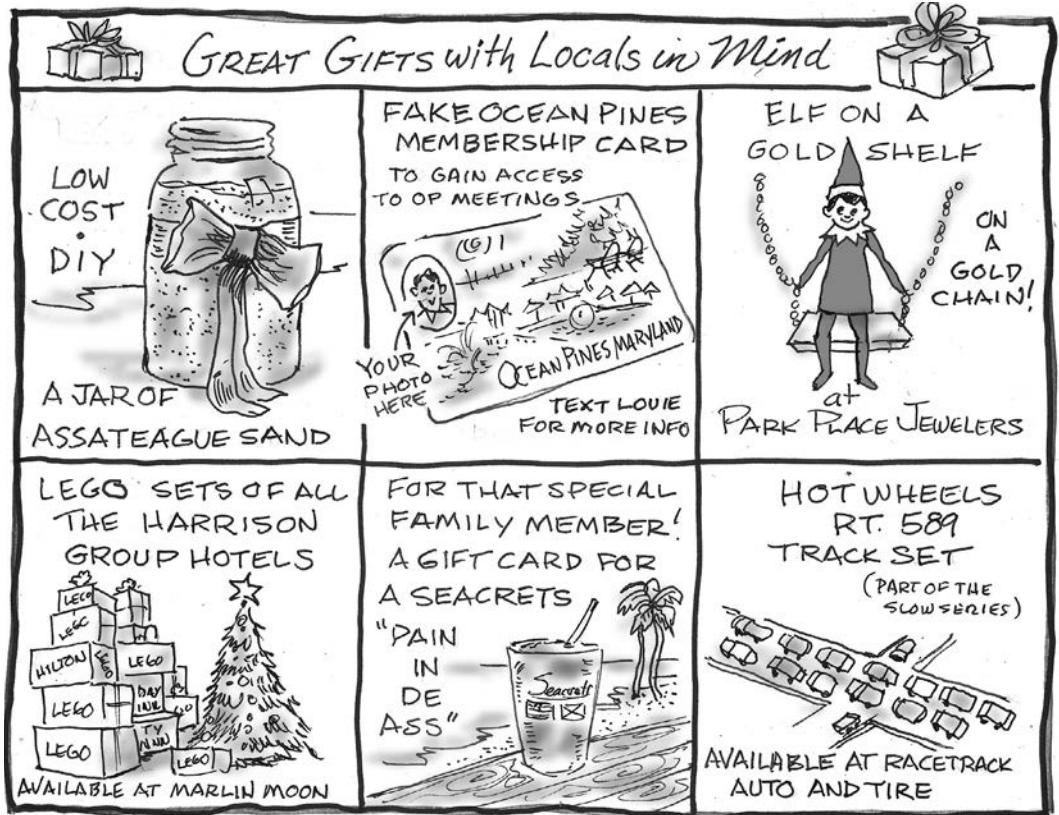 GREAT GIFTS with Locals in Mind
LOW
COST
•
DIY
A JAR OF
ASSATEAGUE SAND
FAKE OCEAN PINES
MEMBERSHIP CARD
TO GAIN ACCESS
TO OP MEETINGS
YOUR
PHOTO
HERE
OCEAN PINES MARYLAND
TEXT LOUIE
FOR MORE INFO
ELF ON A
GOLD SHELF
ON
A
GOLD
CHAIN!
at
PARK PLACE JEWELERS
LEGO SETS OF ALL
THE HARRISON
GROUP HOTELS
LEGO
LEGO
HILTON
LEGO
LEGO
LEGO
DAY
INN
LEGO
LEGO
AVAILABLE AT MARLIN MOON
FOR THAT SPECIAL
FAMILY MEMBER!
A GIFT CARD FOR
A SEACRETS
"PAIN
IN
DE
ASS"
Seacrets
HOT WHEELS
RT. 589
TRACK SET
(PART OF THE
SLOW SERIES)
AVAILABLE AT RACETRACK
AUTO AND TIRE